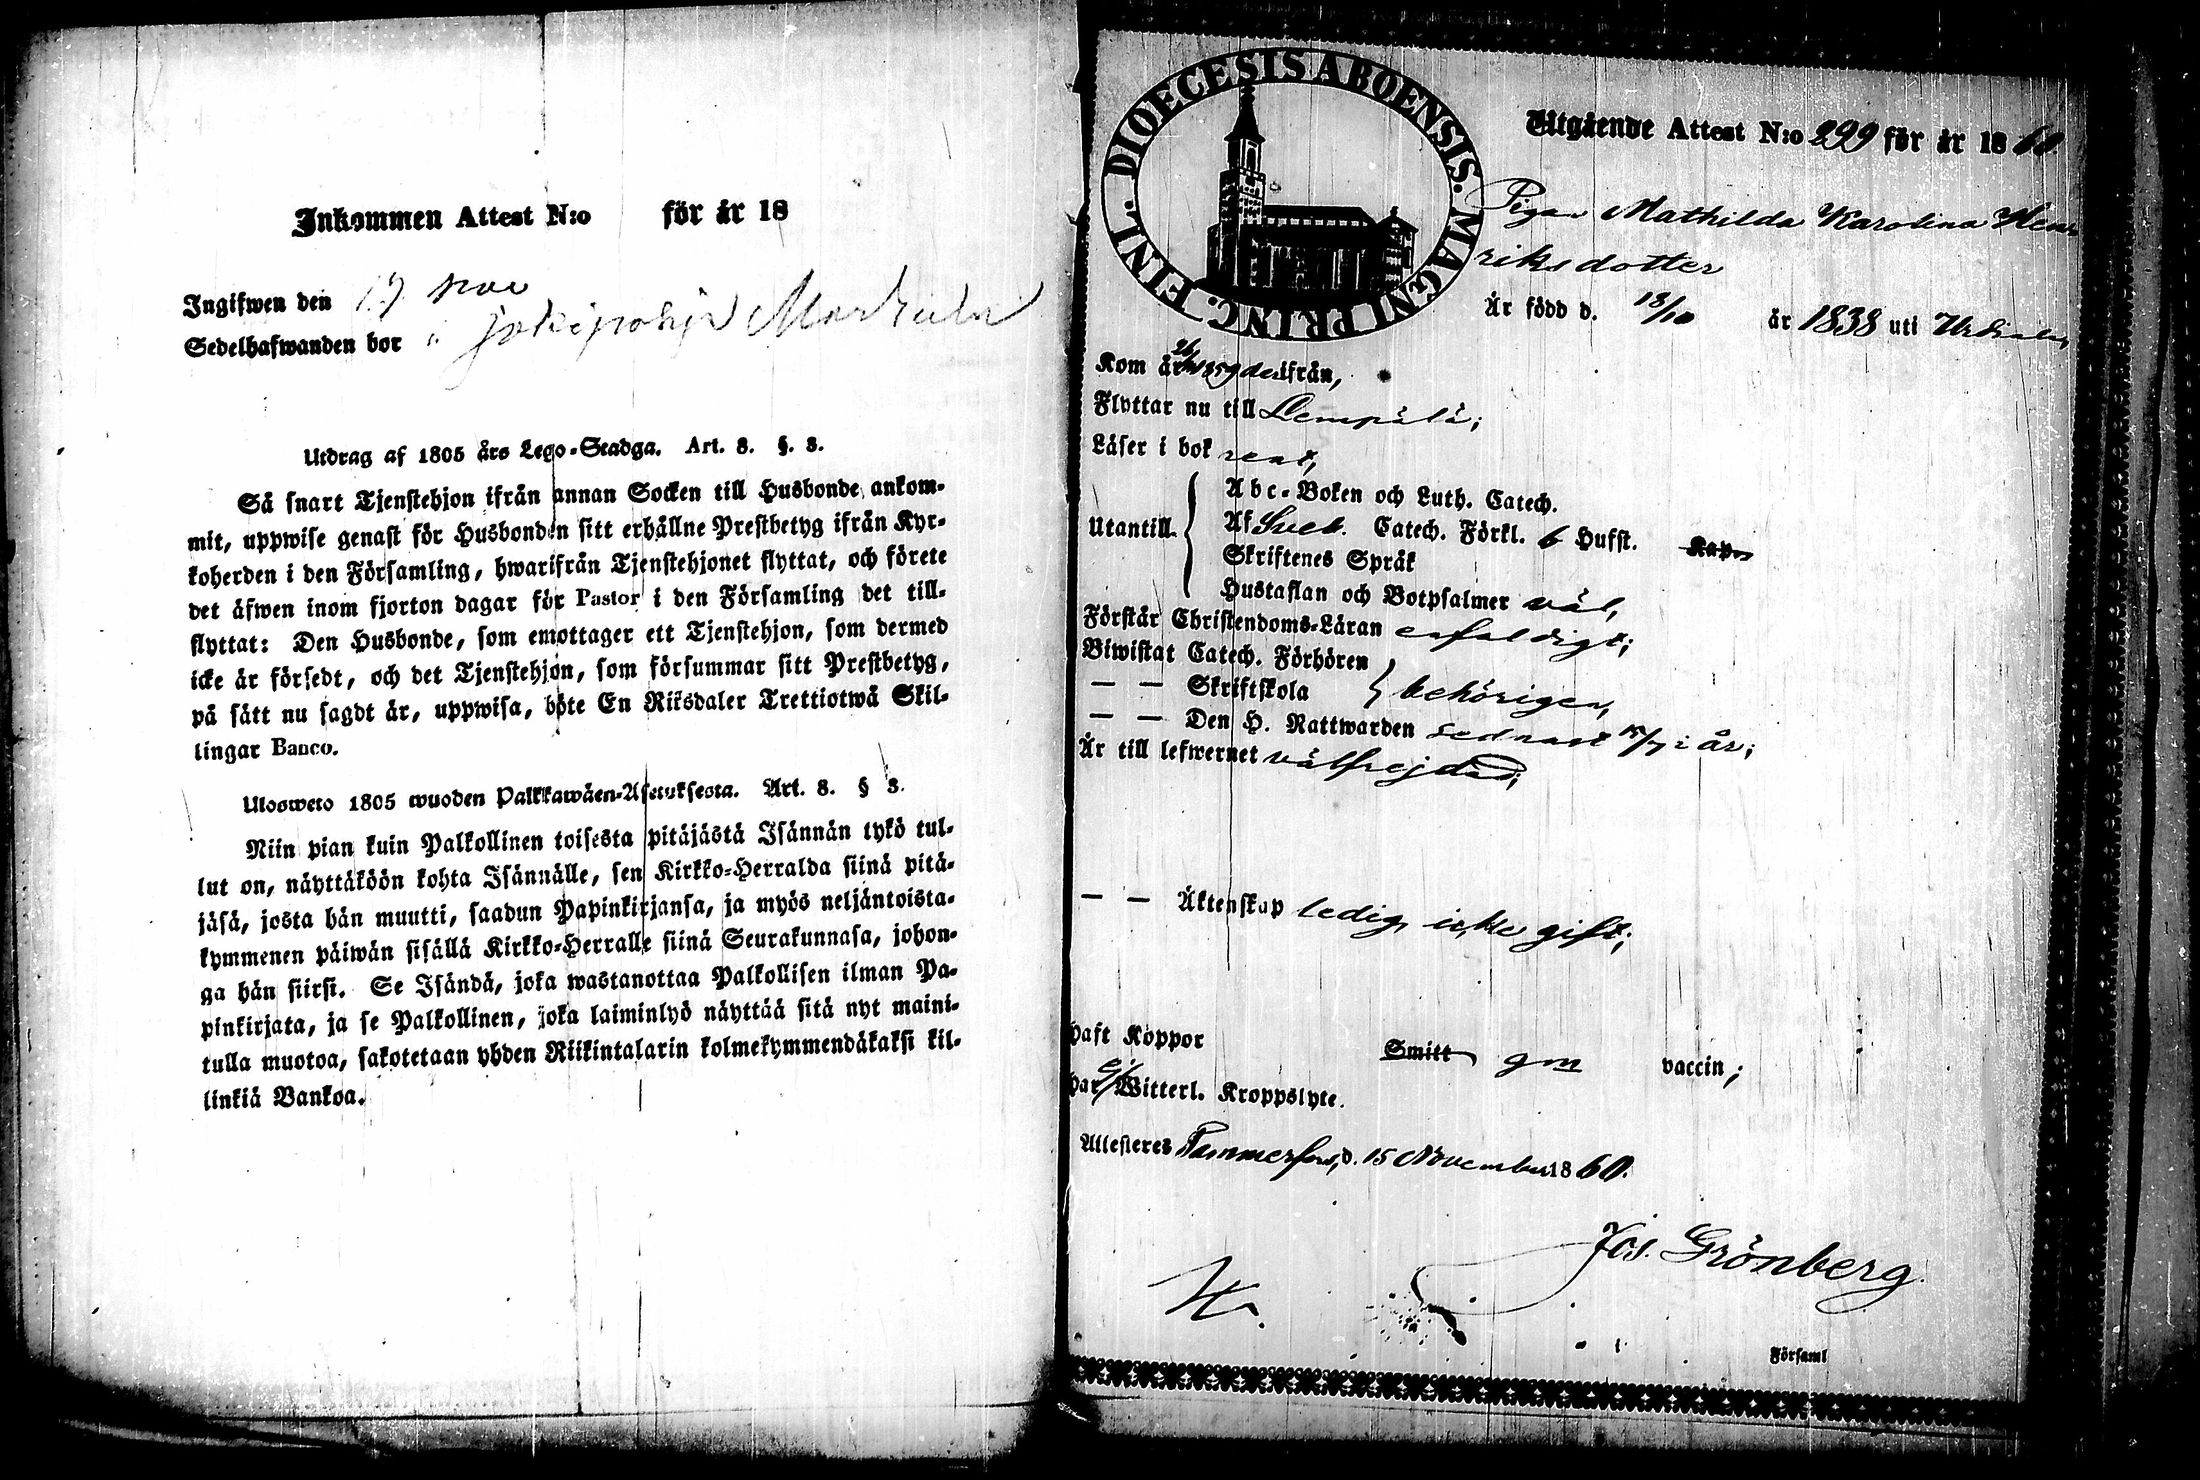 Inkommen Attest N:o för år 18
Ingifwen den 17 nov
Sedelhafwanden bor i Jokipohja Markula
Utdrag af 1805 års Lego-Stadga. Art. 8. §. 3.
Så snart Tjenstehjon ifrån annan Socken till Husbonde ankom-
mit, uppwise genast för Husbonden sitt erhållne Prestbetyg ifrån Kyr-
koherden i den Församling, hwarifrån Tjenstehjonet flyttat, och förete
det äfwen inom fjorton dagar för Pastor i den Församling det till-
flyttat: Den Husbonde, som emottager ett Tjenstehjon, som dermed
icke är försedt, och det Tjenstehjon, som försummar sitt Prestbetyg,
på sätt nu sagdt är, uppwisa, böte En Riksdaler Trettiotwå Skil-
lingar Banco.
Ulosweto 1805 wuoden Palkkawäen-Asetuksesta. Art. 8. § 3.
Niin pian kuin Palkollinen toisesta pitäjästä Isännän tykö tul-
lut on, näyttäköön kohta Isännälle, sen Kirkko-Herralda siinä pitä-
jäsä, josta hän muutti, saadun Papinkirjansa, ja myös neljäntoista-
kymmenen päiwän sisällä Kirkko-Herralle siinä Seurakunnasa, johon-
ga hän siirsi. Se Isändä, joka wastanottaa Palkollisen ilman Pa-
pinkirjata, ja se Palkollinen, joka laiminlyö näyttää sitä nyt maini-
tulla muotoa, sakotetaan yhden Riikintalarin kolmekymmendäkaksi kil-
linkiä Bankoa.
DIOECESIS ABOENSIS. MAGNI PRINC. FINL.
Utgående Attest N:o 299 för år 1860
Pigan Mathilda Karolina Hen
riksdotter
Är född d. 18/10 år 1838 uti Urdiala,
Kom år 1859 derifrån,
Flyttar nu till Lempälä;
Läser i bok rent,
Utantill. Abc-Boken och Luth. Catech.
Af Sveb. Catech. Förkl. 6 Hufst. Kap.
Skriftenes Språk
Hustaflan och Botpsalmer väl,
Förstår Christendoms-Läran enfaldigt;
Biwistat Catech. Förhören
— — Skriftskola behörigen,
— — Den H. Nattwarden sednast 15/7 i år;
Är till lefwernet välfrejdad;
— — Äktenskap ledig, icke gift;
Haft Koppor Smitt gm vaccin;
Har ej Witterl. Kroppslyte.
Attesteres Tammerfors, d. 15 November 1860.
Jos. Grönberg.
Församl